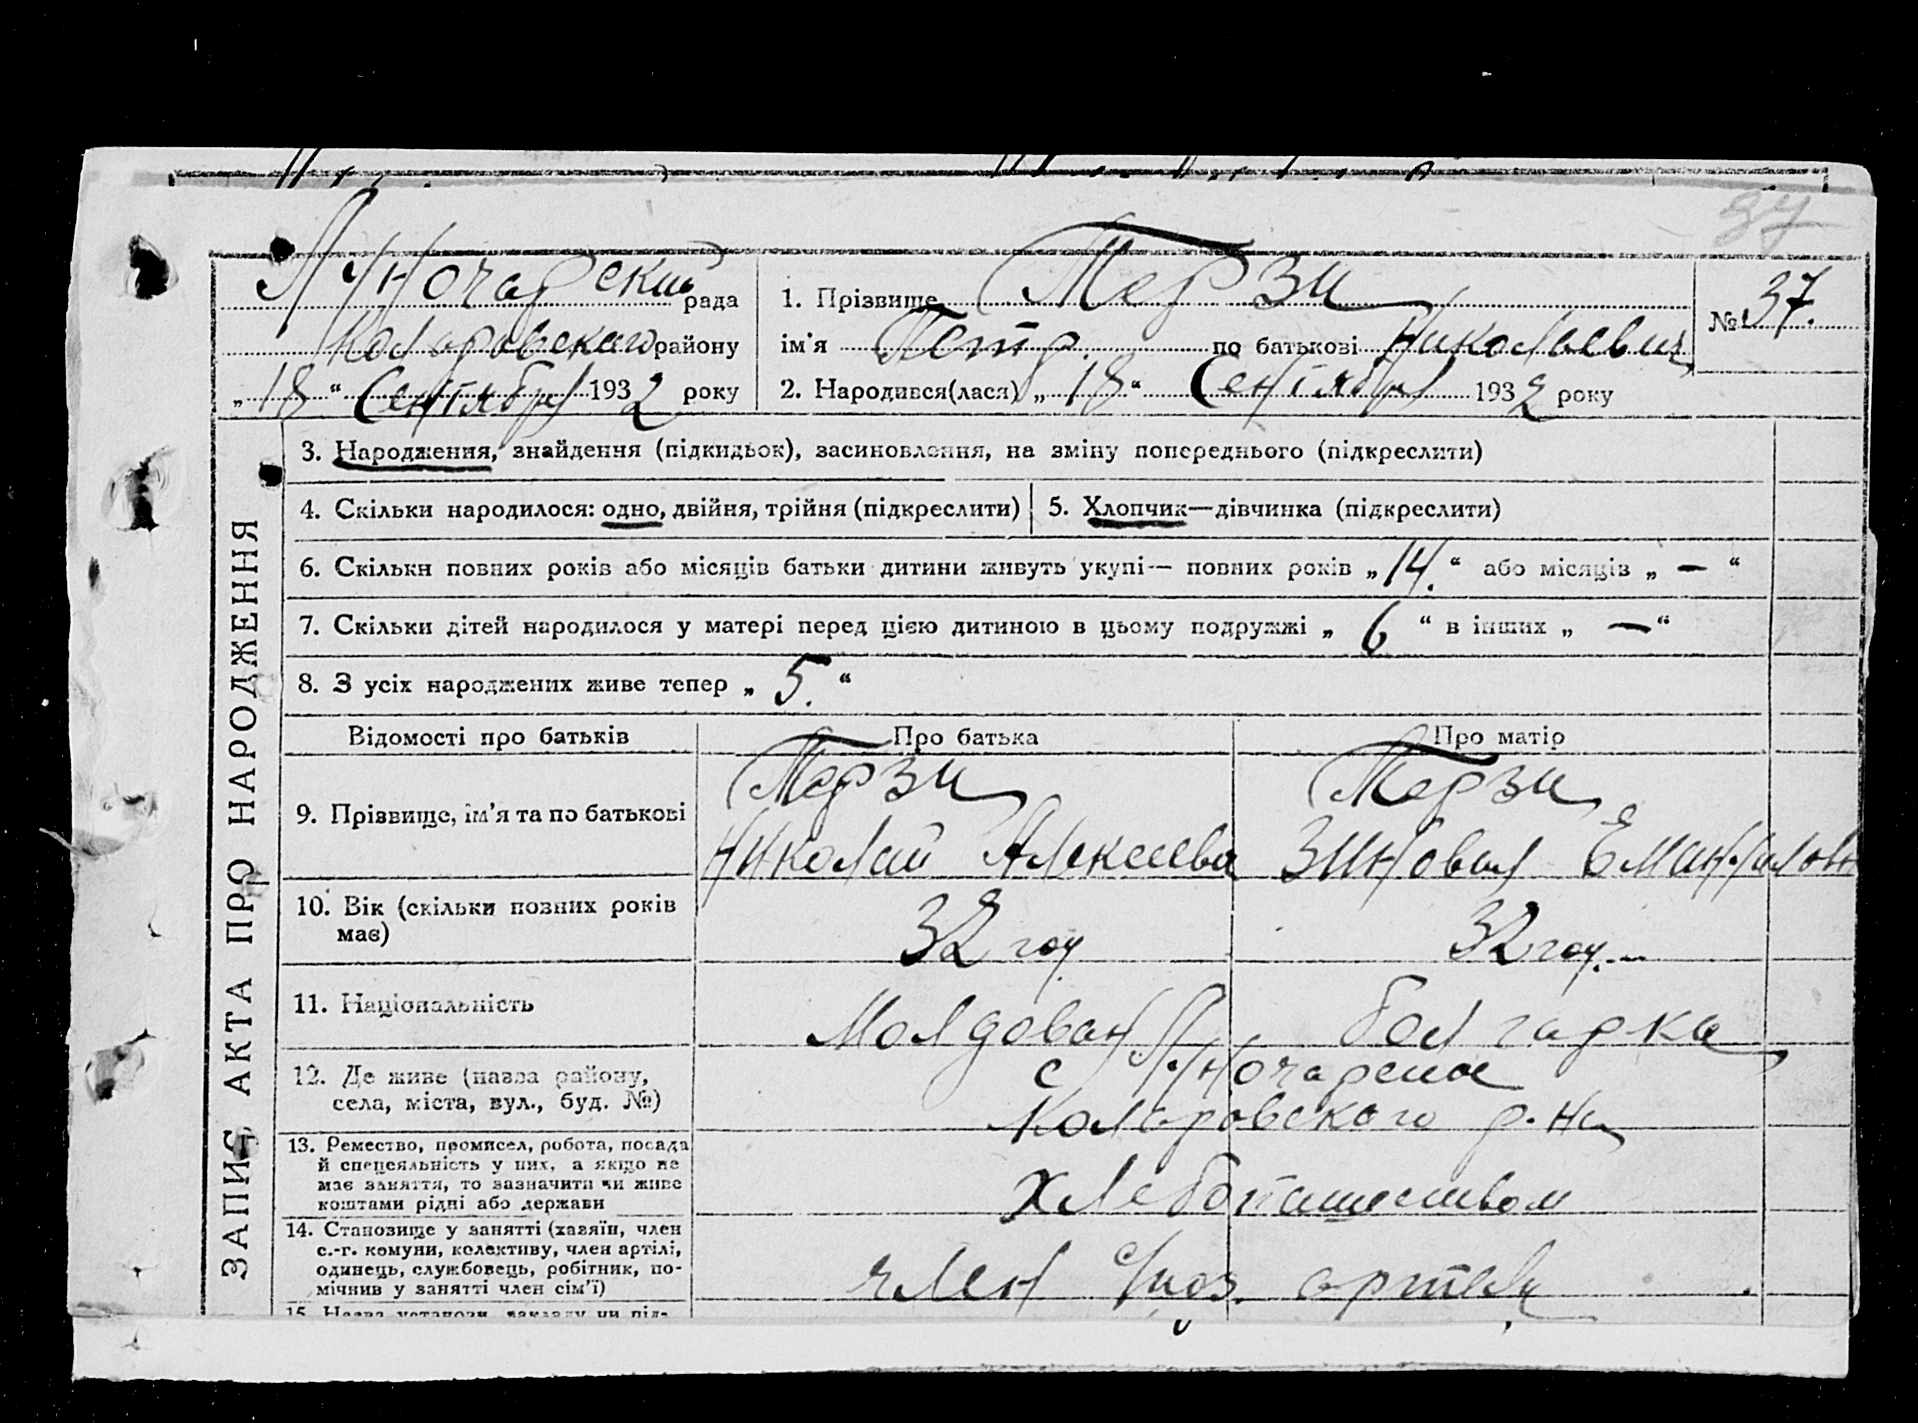 37
Луночарский рада
Коларовского району
„ 18 “ Сентября 1932 року
1. Прізвище Терзи
ім'я Петр по батькові Николаевич
2. Народився(лася) „ 18 “ Сентября 1932 року
№ 37.
ЗАПИС АКТА ПРО НАРОДЖЕННЯ
3. Народження, знайдення (підкидьок), засиновлення, на зміну попереднього (підкреслити)
4. Скільки народилося: одно, двійня, трійня (підкреслити)
5. Хлопчик—дівчинка (підкреслити)
6. Скільки повних років або місяців батьки дитини живуть укупі— повних років „ 14. “ або місяців „ — “
7. Скільки дітей народилося у матері перед цією дитиною в цьому подружжі „ 6 “ в інших „ — “
8. З усіх народжених живе тепер „ 5. “
Відомості про батьків Про батька Про матір
9. Прізвище, ім'я та по батькові
Терзи
Николай Алексеевич
Терзи
Зиновия
10. Вік (скільки повних років
має)
32 год
32 год.
11. Національність
Молдован
болгарка
12. Де живе (назва району,
села, міста, вул., буд. №)
с Луночарское
Коларовского р-на
13. Ремество, промисел, робота, посада
й спеціяльність у них, а якщо не
має заняття, то зазначити чи живе
коштами рідні або держави
Хлебопашеством
14. Становище у занятті (хазяїн, член
с.-г. комуни, колективу, член артілі,
одинець, службовець, робітник, по-
мічник у занятті член сім'ї)
член с/хоз. артели
15. Назва установи, закладу чи під-